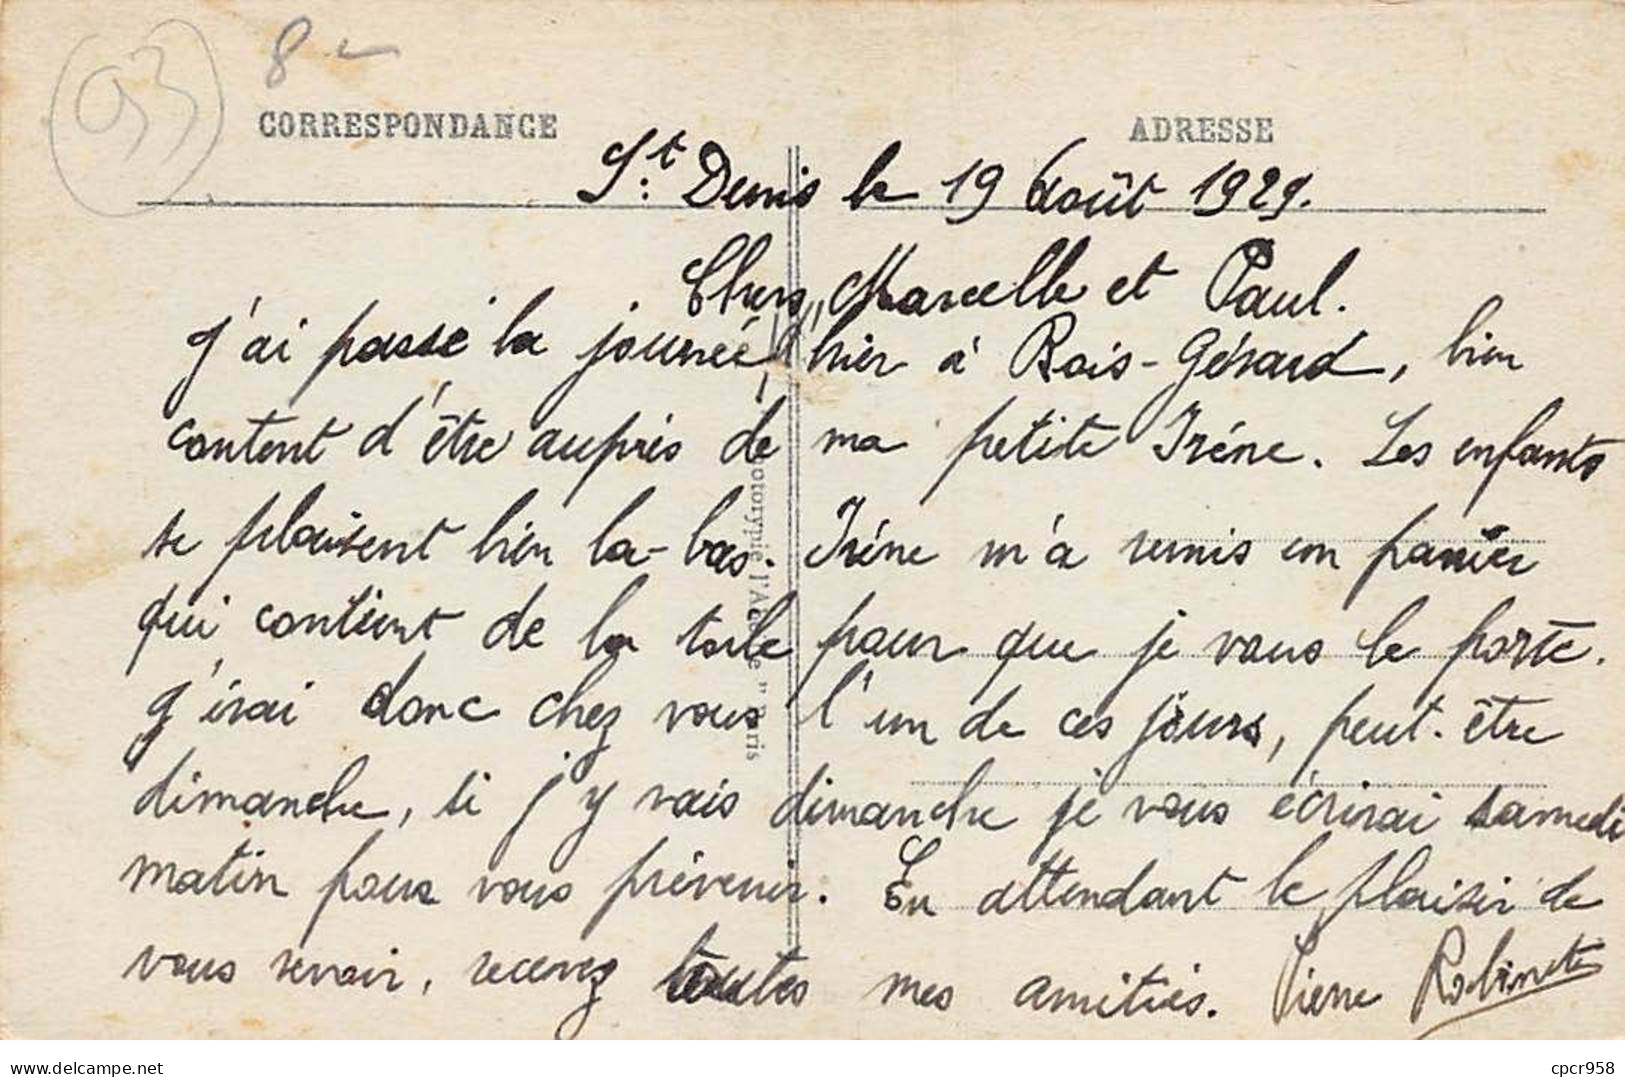 93
8
CORRESPONDANCE
ADRESSE
St Denis le 19 Août 1929.
Chers, Marcelle et Paul.
J'ai passé la journée d'hier à Bois-Gérard, bien
content d'être auprès de ma petite Irène. Les enfants
se plaisent bien la-bas. Irène m'a remis un panier
qui contient de la toile pour que je vous le porte.
J'irai donc chez vous l'un de ces jours, peut-être
dimanche, si j'y vais dimanche je vous écrirai samedi
matin pour vous prévenir. En attendant le plaisir de
vous revoir, recevez toutes mes amitiés. Pierre Robinet
delcampe.net
cpcr958